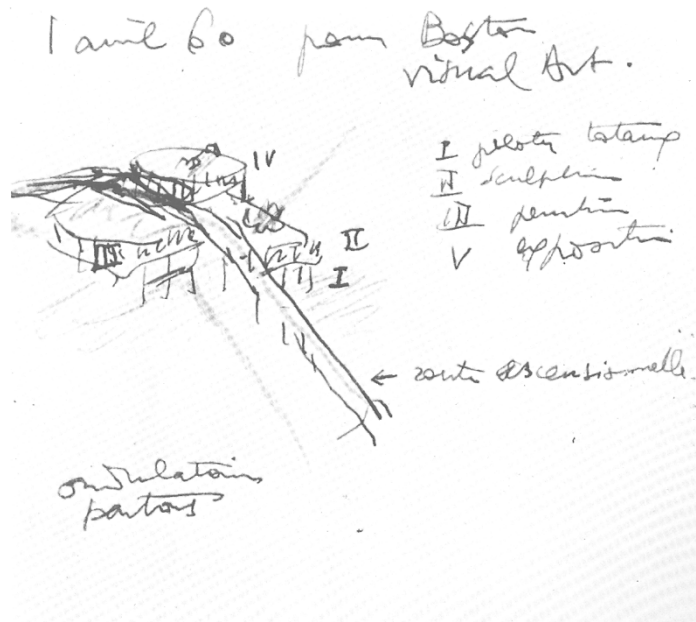 1 avril 60 pour Boston
Visual Art.
I pilotis
II sculpture
III peinture
V exposition
IV
II
III
I
← route ascensionnelle.
ondulatoires
partout